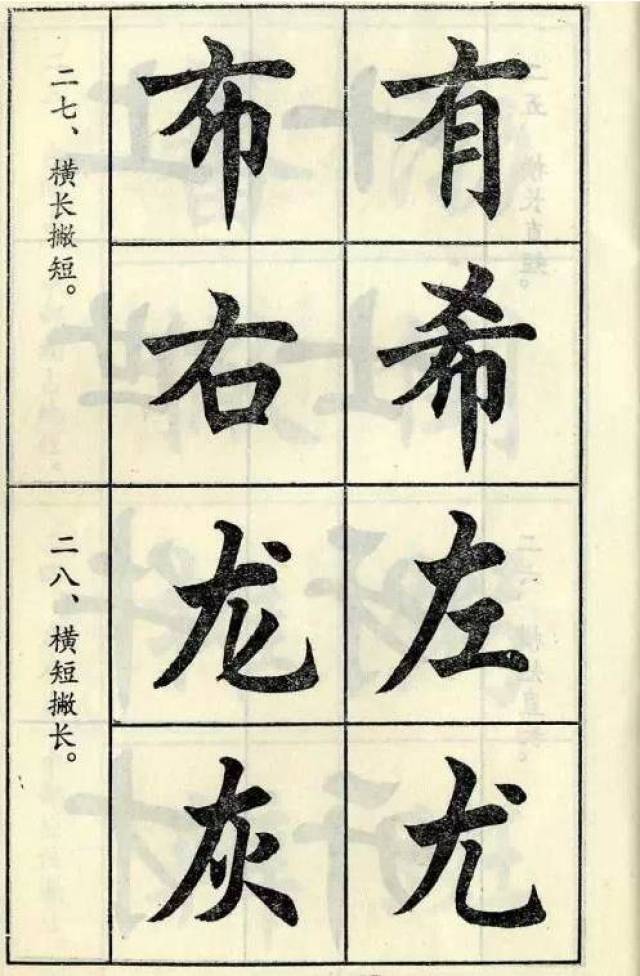 二七、横长撇短。
有希
布右
二八、横短撇长。
左尤
龙灰